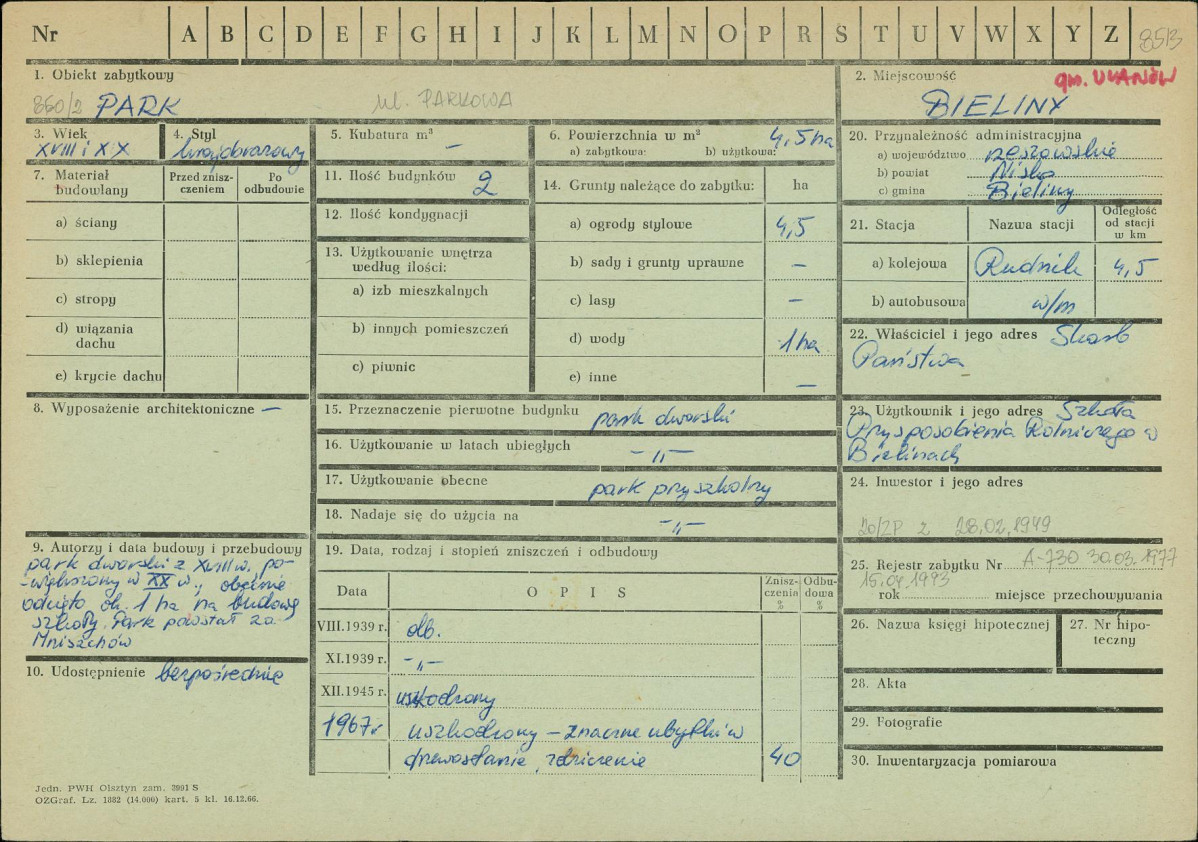 Nr A B C D E F G H I J K L M N O P R S T U V W X Y Z 85/3
1. Obiekt zabytkowy
860/2 PARK ul. PARKOWA
2. Miejscowość gm. ULANÓW
BIELINY
3. Wiek
XVIII i XX
4. Styl
krajobrazowy
5. Kubatura m³
–
6. Powierzchnia w m² 4,5 ha
a) zabytkowa: b) użytkowa:
7. Materiał budowlany
Przed zniszczeniem
Po odbudowie
a) ściany
b) sklepienia
c) stropy
d) wiązania dachu
e) krycie dachu
8. Wyposażenie architektoniczne –
9. Autorzy i data budowy i przebudowy
park dworski z XVIII w. po-
-większony w XX w., obecnie
odcięto ok. 1 ha na budowę
szkoły. Park powstał za
Mniszchów
10. Udostępnienie bezpośrednie
11. Ilość budynków 2
12. Ilość kondygnacji
13. Użytkowanie wnętrza
według ilości:
a) izb mieszkalnych
b) innych pomieszczeń
c) piwnic
14. Grunty należące do zabytku: ha
a) ogrody stylowe 4,5
b) sady i grunty uprawne –
c) lasy –
d) wody 1 ha
e) inne –
15. Przeznaczenie pierwotne budynku park dworski
16. Użytkowanie w latach ubiegłych –„–
17. Użytkowanie obecne park przyszkolny
18. Nadaje się do użycia na –„–
19. Data, rodzaj i stopień zniszczeń i odbudowy
Data OPIS Zniszczenia % Odbudowa %
VIII.1939 r. db.
XI.1939 r. –„–
XII.1945 r. uszkodzony
1967 r uszkodzony – znaczne ubytki w
drzewostanie, zdziczenie 40
20. Przynależność administracyjna
a) województwo rzeszowskie
b) powiat Nisko
c) gmina Bieliny
21. Stacja Nazwa stacji Odległość od stacji w km
a) kolejowa Rudnik 4,5
b) autobusowa w/m
22. Właściciel i jego adres Skarb
Państwa
23. Użytkownik i jego adres Szkoła
Przysposobienia Rolniczego w
Bielinach
24. Inwestor i jego adres
z 28.02.1949
25. Rejestr zabytku Nr A-730 30.03.1977
15.04.1993
rok miejsce przechowywania
26. Nazwa księgi hipotecznej
27. Nr hipoteczny
28. Akta
29. Fotografie
30. Inwentaryzacja pomiarowa
Jedn. PWH Olsztyn zam. 3991 S
OZGraf. Lz. 1882 (14.000) kart. 5 kl. 16.12.66.